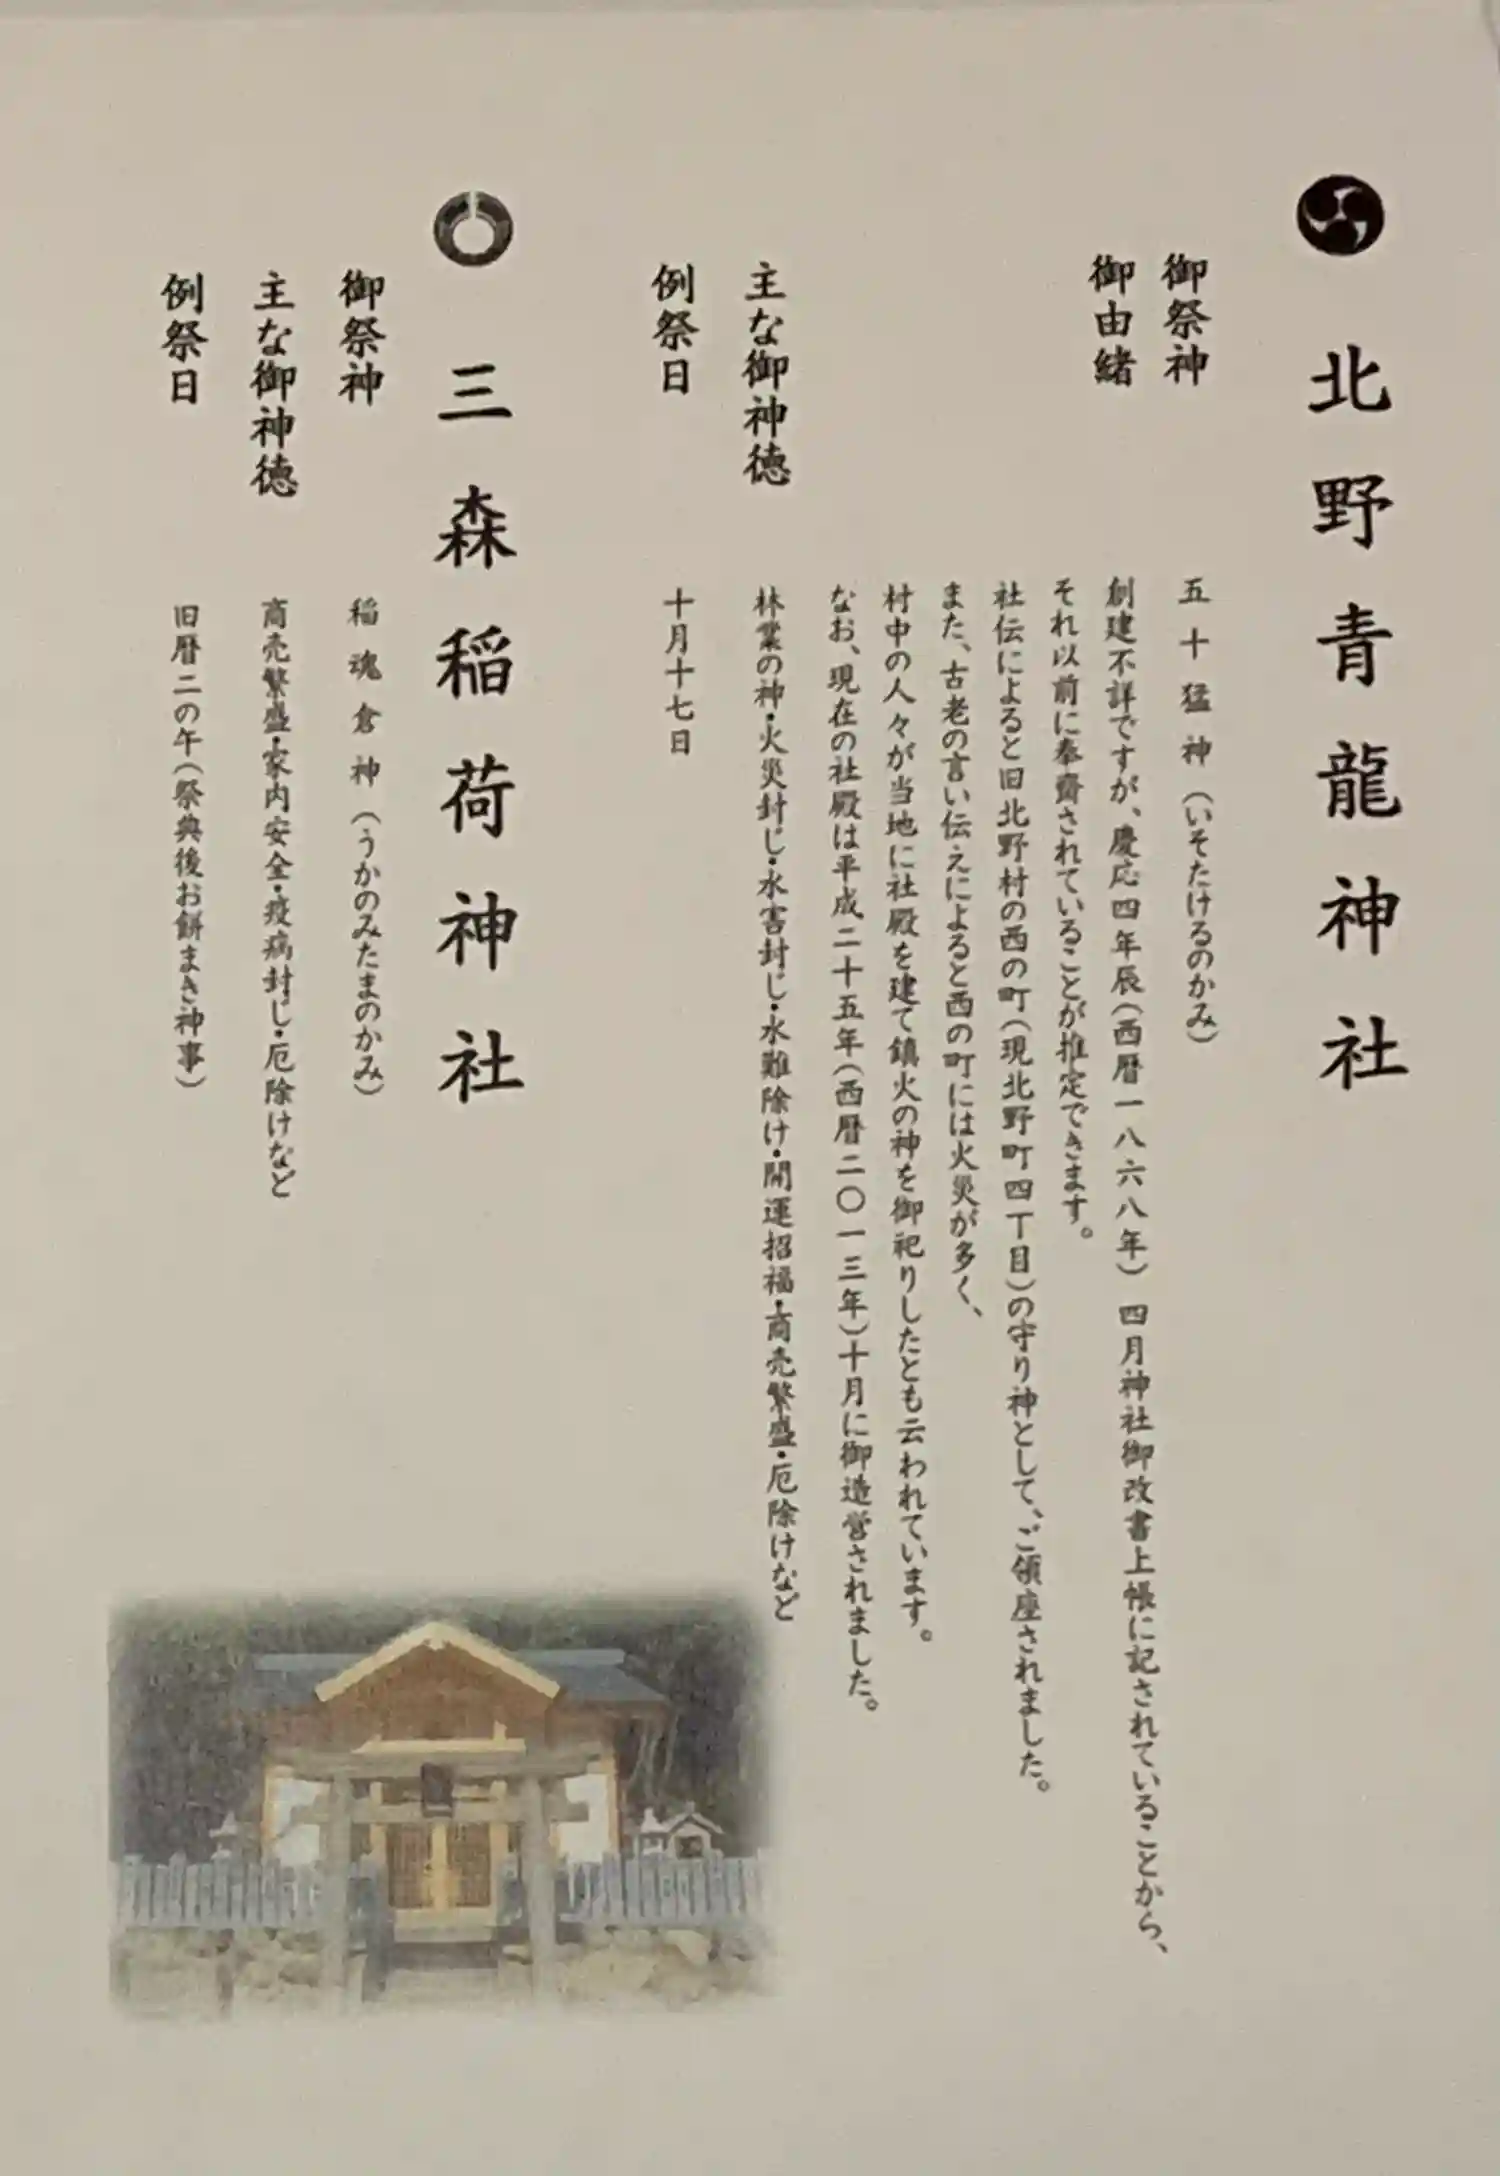 北野青龍神社
御祭神 五十猛神（いそたけるのかみ）
御由緒 創建不詳ですが、慶応四年辰（西暦一八六八年）四月神社御改書上帳に記されていることから、
それ以前に奉齋されていることが推定できます。
社伝によると旧北野村の西の町（現北野町四丁目）の守り神として、ご領座されました。
また、古老の言い伝えによると西の町には火災が多く、
村中の人々が当地に社殿を建て鎮火の神を御祀りしたとも云われています。
なお、現在の社殿は平成二十五年（西暦二〇一三年）十月に御造営されました。
主な御神徳 林業の神・火災封じ・水害封じ・水難除け・開運招福・商売繁盛・厄除けなど
例祭日 十月十七日
三森稲荷神社
御祭神 稲魂倉神（うかのみたまのかみ）
主な御神徳 商売繁盛・家内安全・疫病封じ・厄除けなど
例祭日 旧暦二の午（祭典後お餅まき神事）